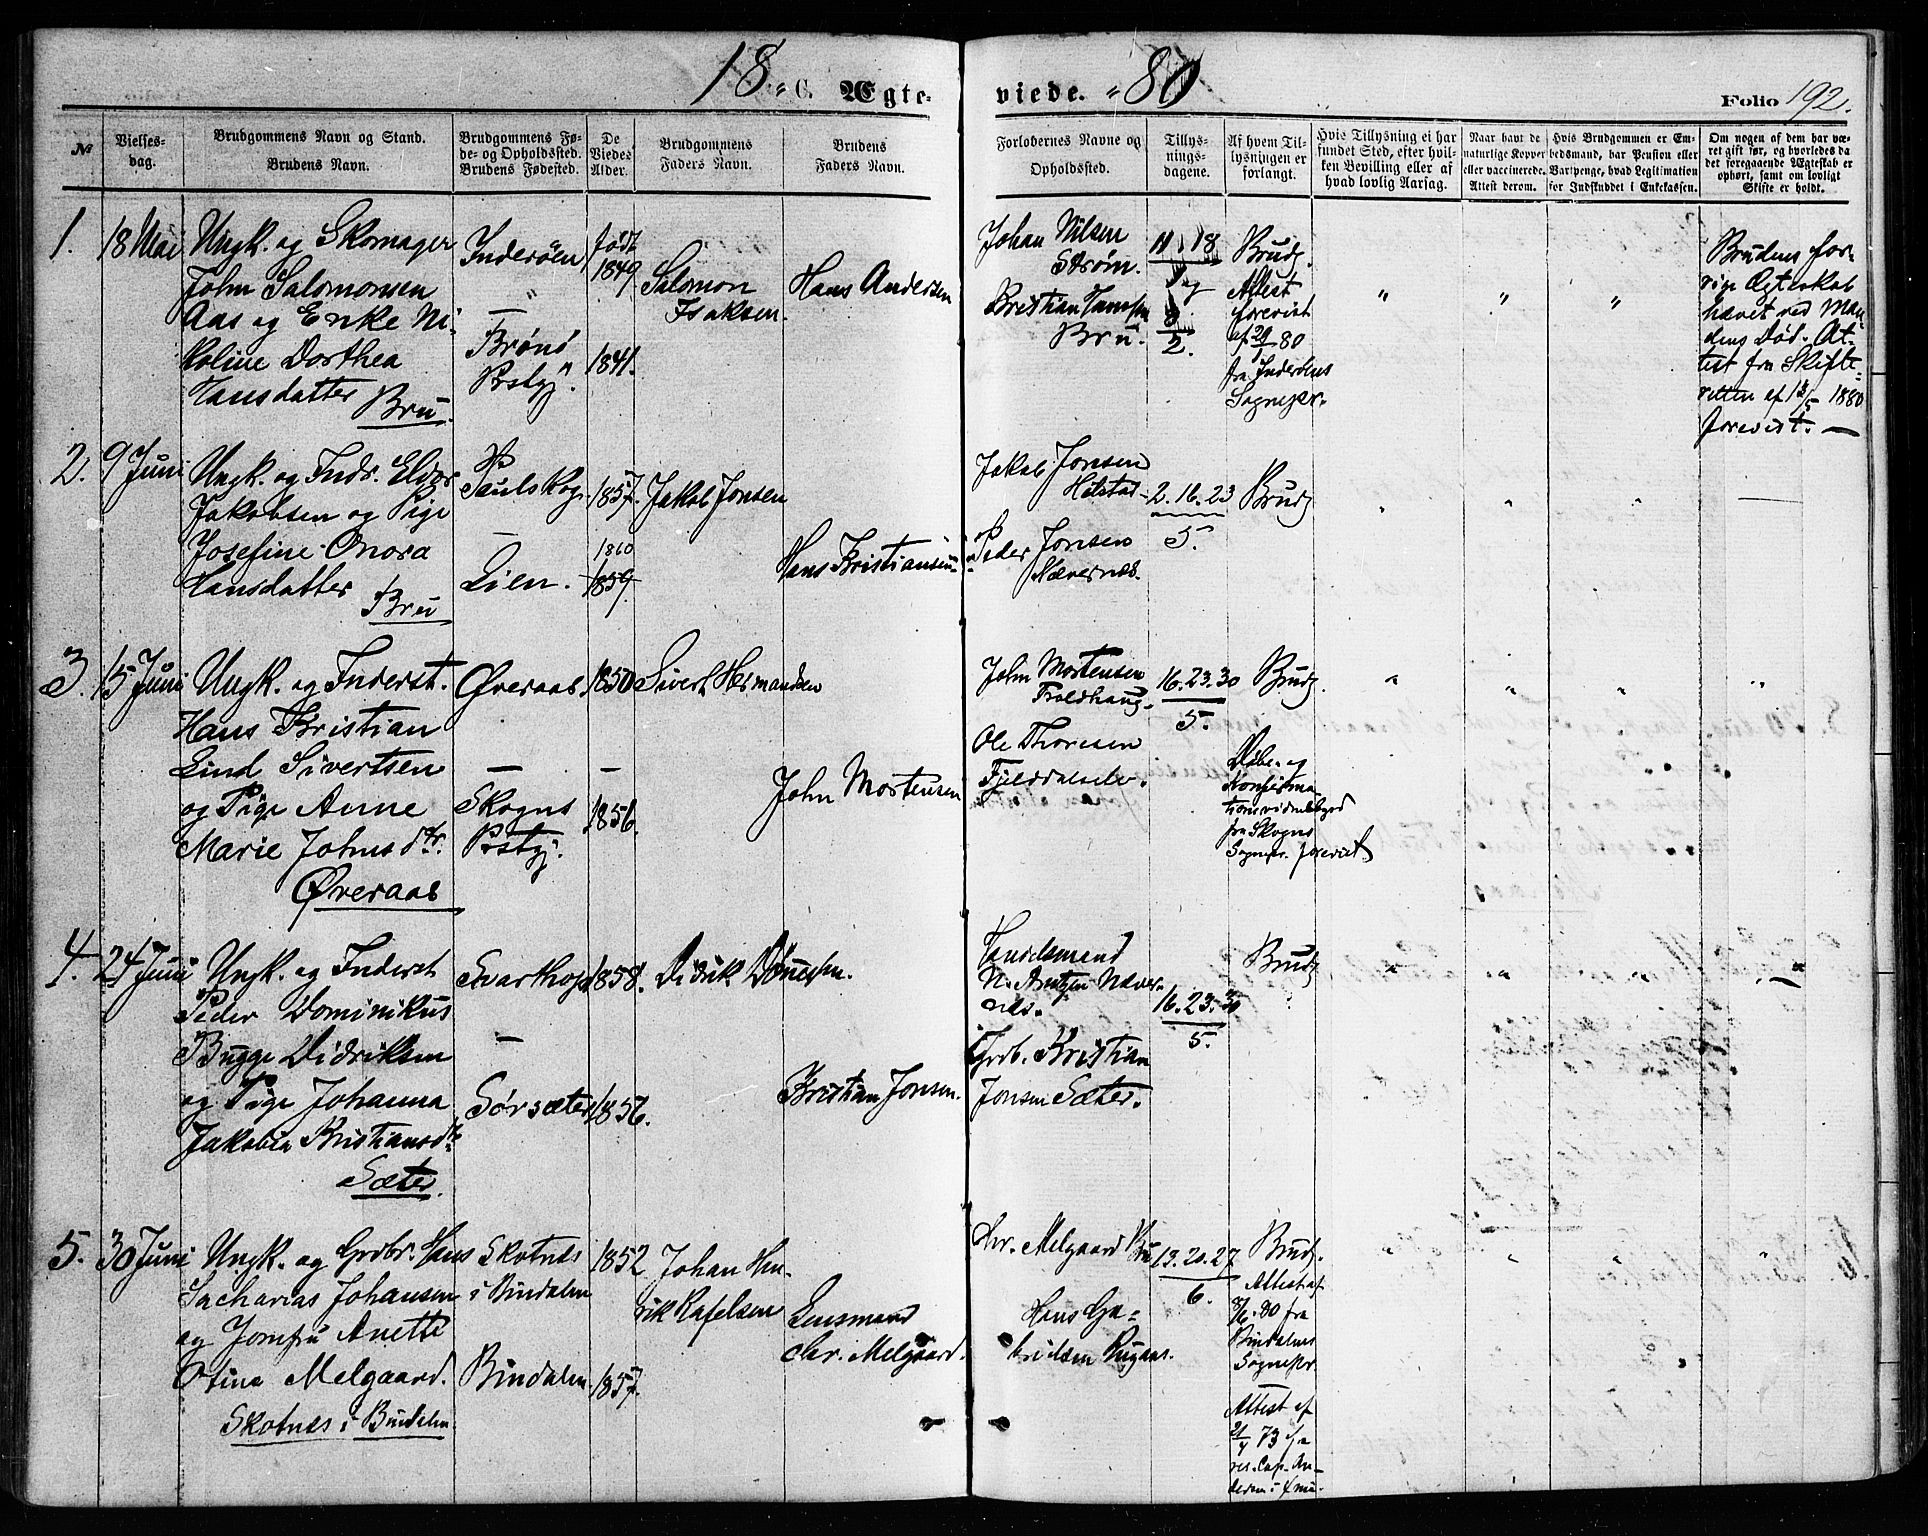 18 „ C. Ægteviede. „ 80
Folio 192.
№
Vielsesdag.
Brudgommens Navn og Stand.
Brudens Navn.
Brudgommens Føde- og Opholdssted.
Brudens Fødested.
De Viedes Alder.
Brudgommens Faders Navn.
Brudens Faders Navn.
Forlovernes Navne og Opholdssted.
Tillysningsdagene.
Af hvem Tillysningen er forlangt.
Hvis Tillysning ei har fundet Sted, efter hvilken Bevilling eller af hvad lovlig Aarsag.
Naar havt de naturlige Kopper eller vaccinerede. Attest derom.
Hvis Brudgommen er Embedsmand, har Pension eller Vartpenge, hvad Legitimation for Indskuddet i Enkekassen.
Om nogen af dem har været gift før, og hvorledes da det foregaaende Ægteskab er ophørt, samt om lovligt Skifte er holdt.
1. 18 Mai
Ungk. og Skomager
John Salomonsen
Aas og Enke Ni-
koline Dorthea
Hansdatter Bru.
Inderøen
"
—
Brønø
Prstgj.
født
1849
1841.
Salomon
Isaksen.
Hans Andersen
Johan Nilsen
Strøm.
Kristian Hansen
Bru.
11. 18
1 og
8
2.
Brudg.
Attest
forevist
af 20/1 80
fra Inderøens
Sognepr.
" " "
Brudens for-
rige Ægteskab
hævet ved Man-
dens Død. At-
test fra Skifte-
retten af 1880
forevist. —
2. 9 Juni
Ungk. og Inds. Eldor
Jakobsen og Pige
Josefine Onora
Hansdatter
Bru
Paulskog
—
Lien.
1857.
1860
1859.
Jakob Jonsen
Hans Kristiansen
Jakob Jonsen
Hilstad
Peder Jonsen
Nævernes.
2. 16. 23
5.
Brudg
" " "
3. 15 Juni
Ungk. og Inderst.
Hans Kristian
Lind Sivertsen
og Pige Anne
Marie Johnsdtr.
Øveraas
Øveraas
—
Skogns
Prstgj.
1850
—
1856.
Sivert Hermandsen
John Mortensen
John Mortensen
Troldhaug.
Ole Thoresen
Fjelddalselv.
16. 23. 30
5.
Brudg.
Døbe- og
Konfirma-
tionsvidnesbyrd
fra Skogns
Sognepr. forevist
" " " "
4. 24 Juni
Ungk. og Inderst
Peder Dominikus
Bugge Didriksen
og Pige Johanna
Jakobia Kristiansdtr
Sæter.
Svarthopen
—
Sørsæter
1858.
1856.
Didrik Dönnesen.
Kristian Jonsen.
Handelsmand
N. Arntzen Næver-
nes.
Grdb. Kristian
Jonsen Sæter.
16. 23. 30
5.
Brudg
" " " "
5. 30 Juni
Ungk. og Grdbr. Hans
Sacharias Johansen
og Jomfru Anette
Otine Melgaard.
Skotnes i Bindalen.
Skotnes
i Bindalen
Bindalen.
1852
1857.
Johan Hen-
rik Rafelsen
Lensmand
Chr. Melgaard.
Chr. Melgaard Bru
Hans Ga-
brielsen Rugaas.
13. 20. 27
6.
Brudg.
Attest af
7/6. 80 fra
Bindalens
Sognepr.
Attest af
21/4 73 fra
res. Cap. An-
dersen i
" " " "